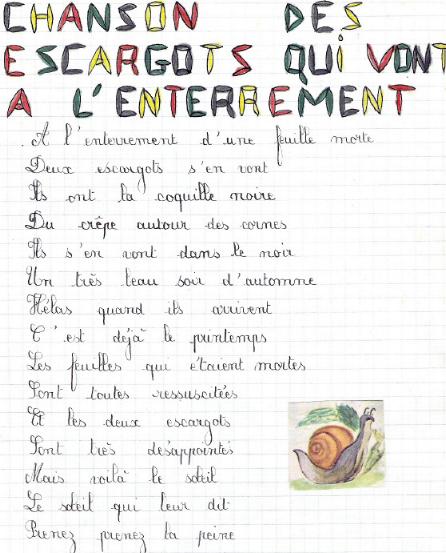 CHANSON DES
ESCARGOTS QUI VONT
A L'ENTERREMENT
A l'enterrement d'une feuille morte
Deux escargots s'en vont
Ils ont la coquille noire
Du crêpe autour des cornes
Ils s'en vont dans le noir
Un très beau soir d'automne
Hélas quand ils arrivent
C'est déjà le printemps
Les feuilles qui étaient mortes
Sont toutes ressuscitées
Et les deux escargots
Sont très désappointés
Mais voilà le soleil
Le soleil qui leur dit
Prenez prenez la peine